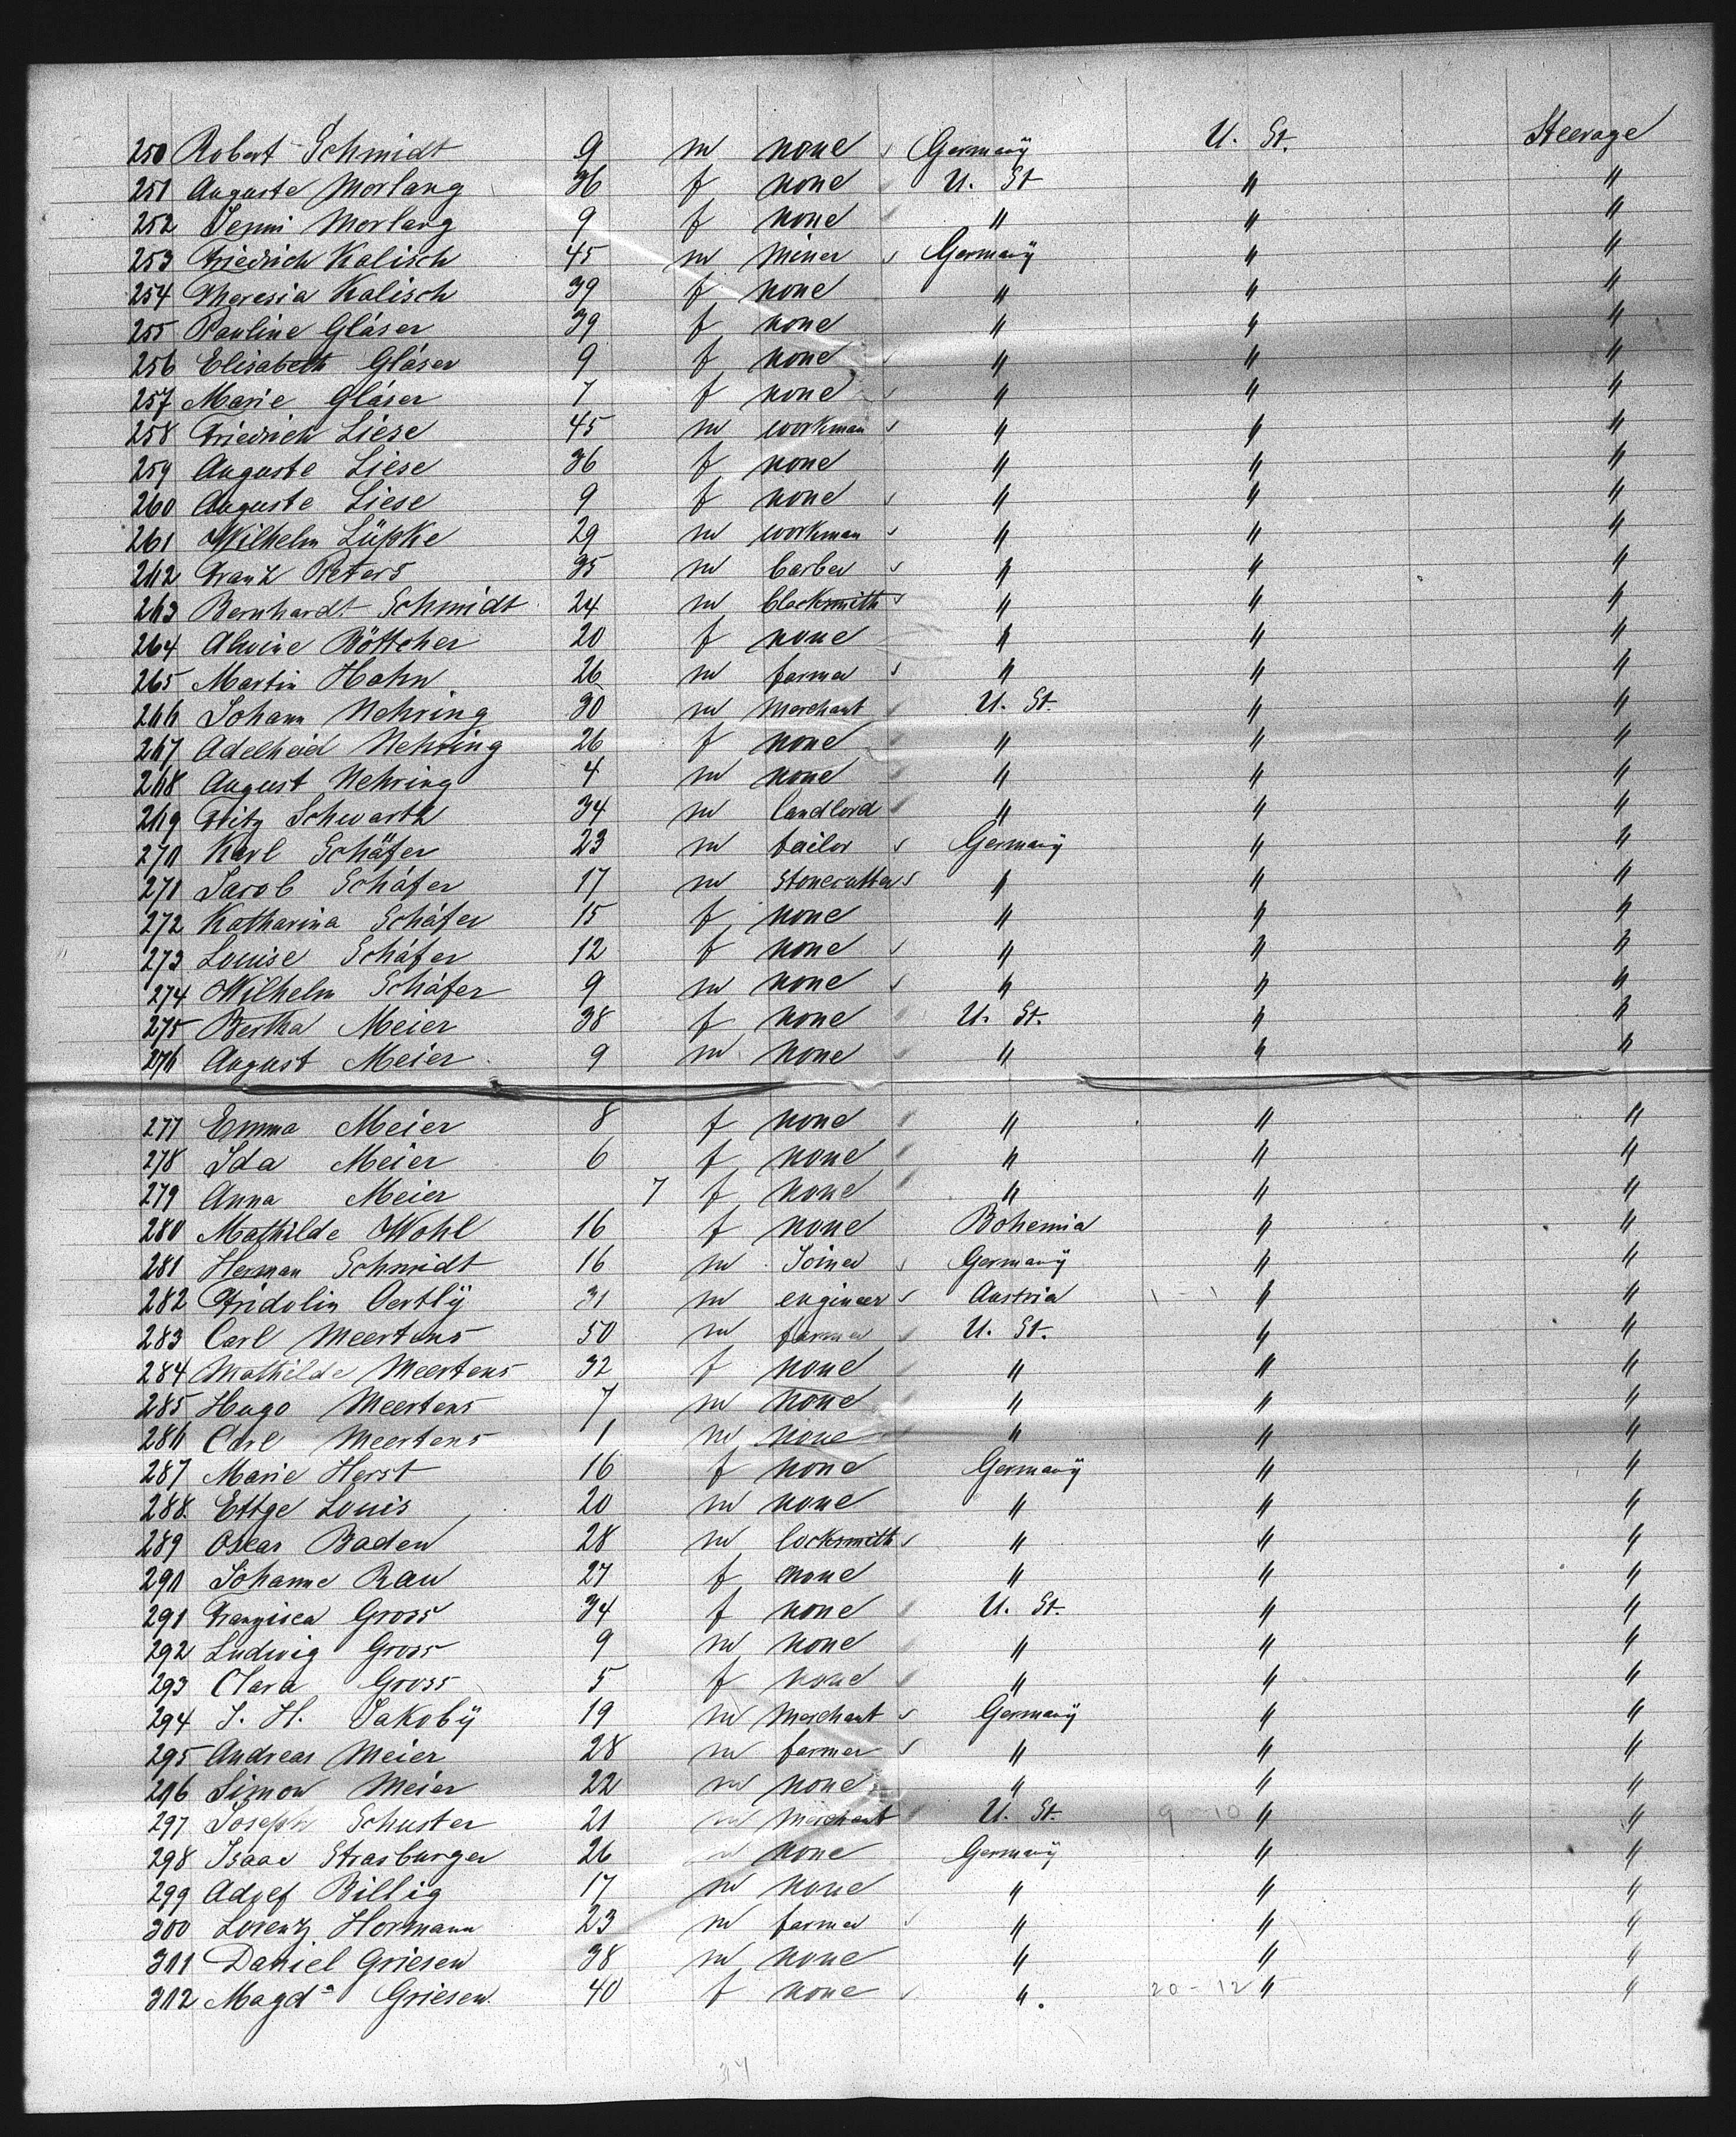 250 Robert Schmidt 9 m none Germany U. St. Steerage
251 Auguste Morlang 36 f none U. St " "
252 Jenni Morlang 9 f none " " "
253 Friedrich Kalisch 45 m miner Germany " "
254 Theresia Kalisch 39 f none " " "
255 Pauline Gläser 39 f none " " "
256 Elisabeth Gläser 9 f none " " "
257 Marie Gläser 7 f none " " "
258 Friedrich Liese 45 m workman " " "
259 Auguste Liese 36 f none " " "
260 Auguste Liese 9 f none " " "
261 Wilhelm Lüpke 29 m workman " " "
262 Franz Peters 35 m barber " " "
263 Bernhardt Schmidt 24 m blacksmith " " "
264 Alwine Böttcher 20 f none " " "
265 Martin Hahn 26 m farmer " " "
266 Johann Nehring 30 m merchant U. St. " "
267 Adelheid Nehring 26 f none " " "
268 August Nehring 4 m none " " "
269 Fritz Schwarth 34 m landlord " " "
270 Karl Schäfer 23 m tailor Germany " "
271 Jacob Schäfer 17 m stonecutter " " "
272 Katharina Schäfer 15 f none " " "
273 Louise Schäfer 12 f none " " "
274 Wilhelm Schäfer 9 m none " " "
275 Bertha Meier 38 f none U. St. " "
276 August Meier 9 m none " " "
277 Emma Meier 8 f none " " "
278 Ida Meier 6 f none " " "
279 Anna Meier 7 f none " " "
280 Mathilde Wohl 16 f none Bohemia " "
281 Herman Schmidt 16 m Joiner Germany " "
282 Fridolin Oertly 31 m engineer Austria " "
283 Carl Meertens 50 m farmer U. St. " "
284 Mathilde Meertens 32 f none " " "
285 Hugo Meertens 7 m none " " "
286 Carl Meertens 1 m none " " "
287 Marie Herst 16 f none Germany " "
288. Ettge Louis 20 m none " " "
289 Oscar Baden 28 m locksmith " " "
290 Johanne Rau 27 f none " " "
291 Franzisca Gross 34 f none U. St. " "
292 Ludwig Gross 9 m none " " "
293 Clara Gross 5 f none " " "
294 J. H. Jakoby 19 m merchant Germany " "
295 Andreas Meier 28 m farmer " " "
296 Simon Meier 22 m none " " "
297 Joseph Schuster 21 m merchant U. St. 9 - 10 " "
298 Isaac Strasburger 26 m none Germany " "
299 Adolf Billig 17 m none " " "
300 Lorenz Hormann 23 m farmer " " "
301 Daniel Griesen 38 m none " " "
302 Magda Griesen 40 f none " 20 - 12 " "
34